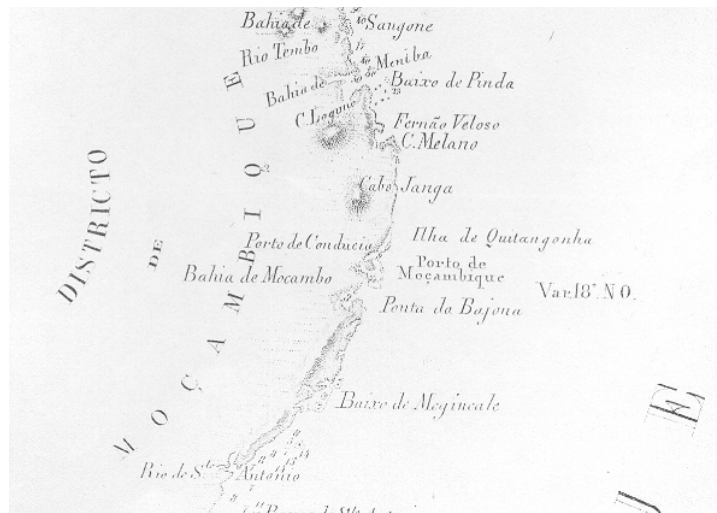 Bahia de Sangone
Rio Tembo
Meniba
Bahia de
Baixo de Pinda
C. Logono
Fernão Veloso
C. Melano
Cabo Janga
Ilha de Quitangonha
Porto de Conducia
Porto de
Moçambique
Bahia de Mocambo
Var. 18° N O.
Ponta da Bajona
Baixo de Mogincale
Rio de Sto Antonio
DISTRICTO
DE
MOÇAMBIQUE
U E